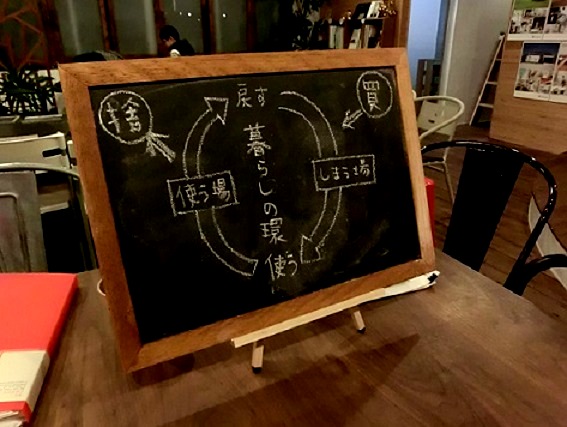 戻す
捨
買
暮らしの環
使う場
しまう場
使う